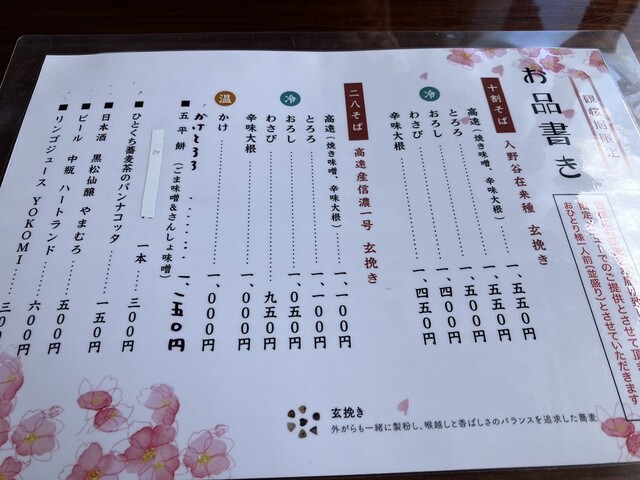 観桜期限定
限定メニューでのご提供とさせて頂き
おひとり様一人前(並盛り)とさせていただきます
お品書き
十割そば 入野谷在来種 玄挽き
冷
高遠(焼き味噌、辛味大根)……一、五五〇円
とろろ……一、五五〇円
おろし……一、五〇〇円
わさび……一、四〇〇円
辛味大根……一、四五〇円
二八そば 高遠産信濃一号 玄挽き
冷
高遠(焼き味噌、辛味大根)……一、一〇〇円
とろろ……一、一〇〇円
おろし……一、〇五〇円
わさび……九五〇円
辛味大根……一、〇〇〇円
温
かけ……一、〇〇〇円
かけとろろ……一、二五〇円
■五平餅(ごま味噌&さんしょ味噌)
一本 三〇〇円
■ひとくち蕎麦茶のパンナコッタ 一五〇円
■日本酒 黒松仙醸 やまむろ 五〇〇円
■ビール 中瓶 ハートランド 六〇〇円
■リンゴジュース YOKOMI 三〇
玄挽き
外がらも一緒に製粉し、喉越しと香ばしさのバランスを追求した蕎麦